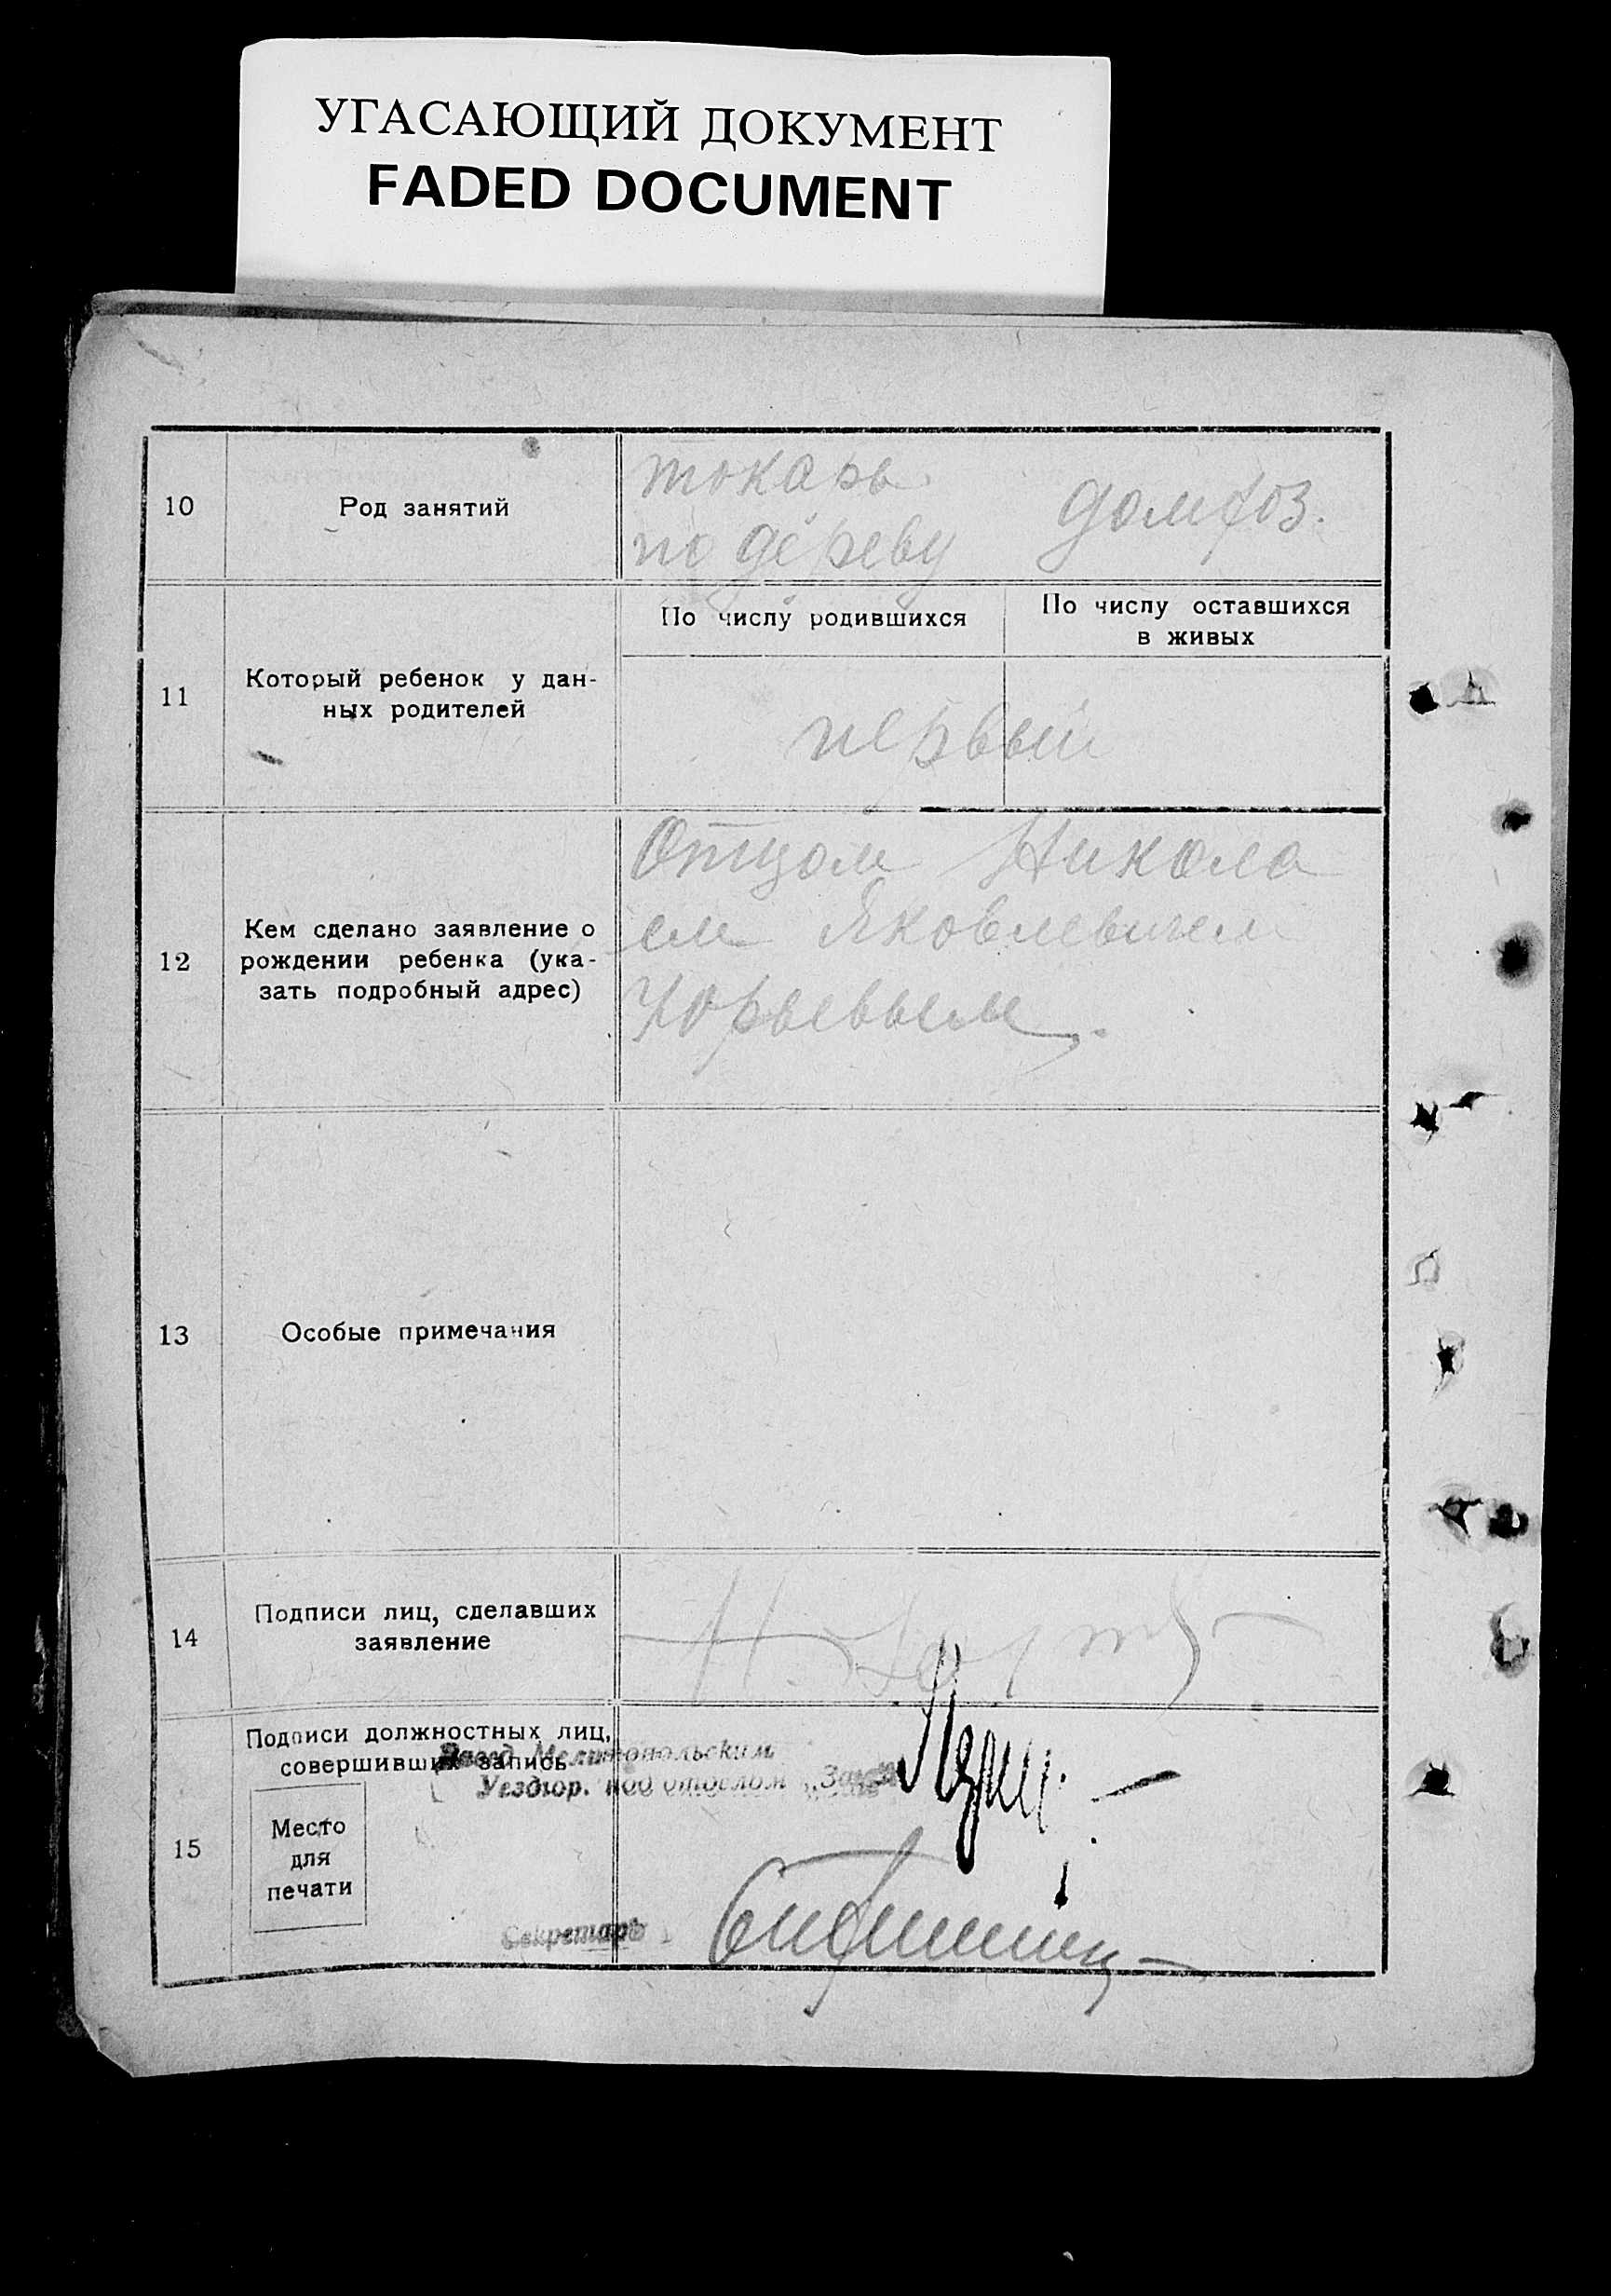 УГАСАЮЩИЙ ДОКУМЕНТ
FADED DOCUMENT
10
Род занятий
токарь
по дереву
домхоз.
11
Который ребенок у дан-
ных родителей
По числу родившихся
По числу оставшихся
в живых
первый
12
Кем сделано заявление о
рождении ребенка (ука-
зать подробный адрес)
Отцом Никола
ем Яковлевичем
Юрьевым.
13
Особые примечания
14
Подписи лиц, сделавших
заявление
15
Подписи должностных лиц,
совершивших запись
Завед. Мелитопольским
Уездюр. под отделом
Место
для
печати
Секретарь